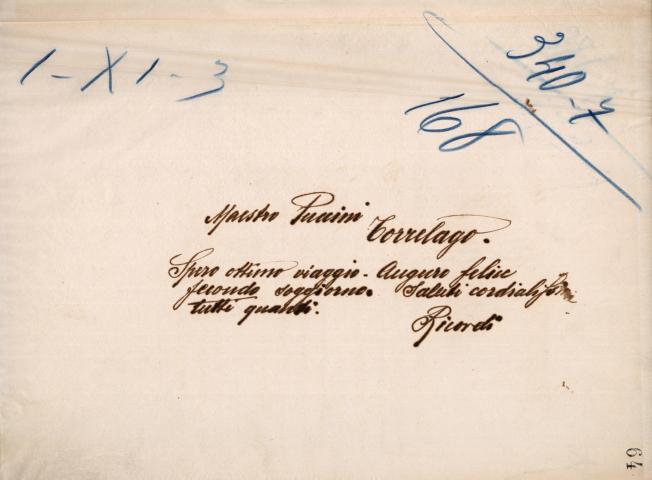 1-XI-3
340-7
168
Maestro Puccini
Torrelago.
Spero ottimo viaggio - Auguro felice
fecondo soggiorno. Saluti cordialissimi
tutti quanti.
Ricordi
64